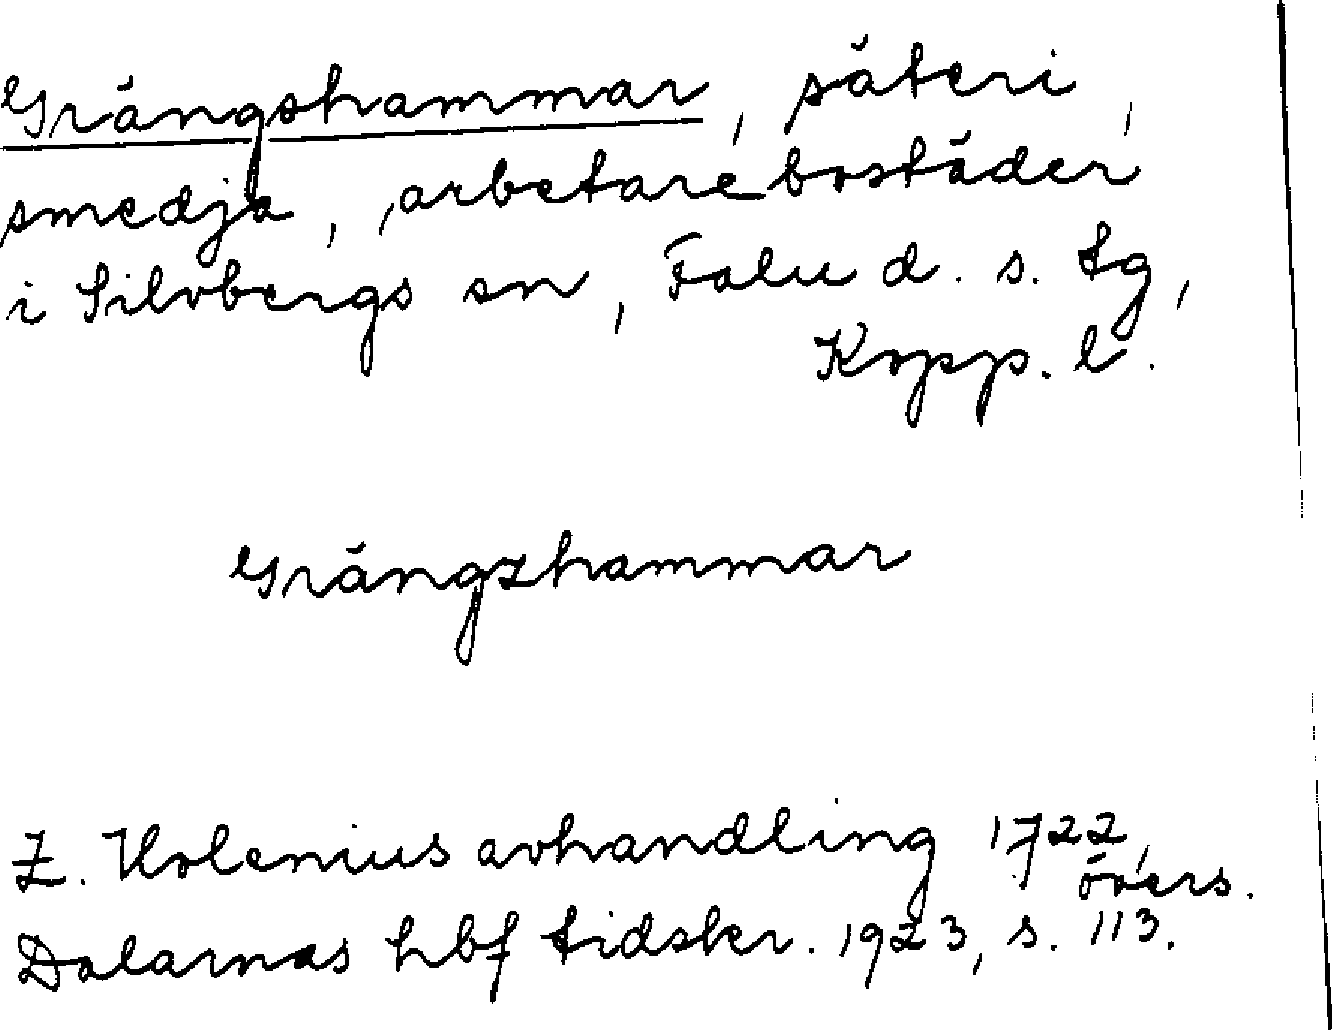 Grängshammar, säteri,
smedja, arbetarebostäder
i Silvbergs sn, Falu d. s. tg,
Kopp. l.
Grängzhammar
Z. Holenius avhandling 1722,
övers.
Dalarnas hbf tidskr. 1923, s. 113.